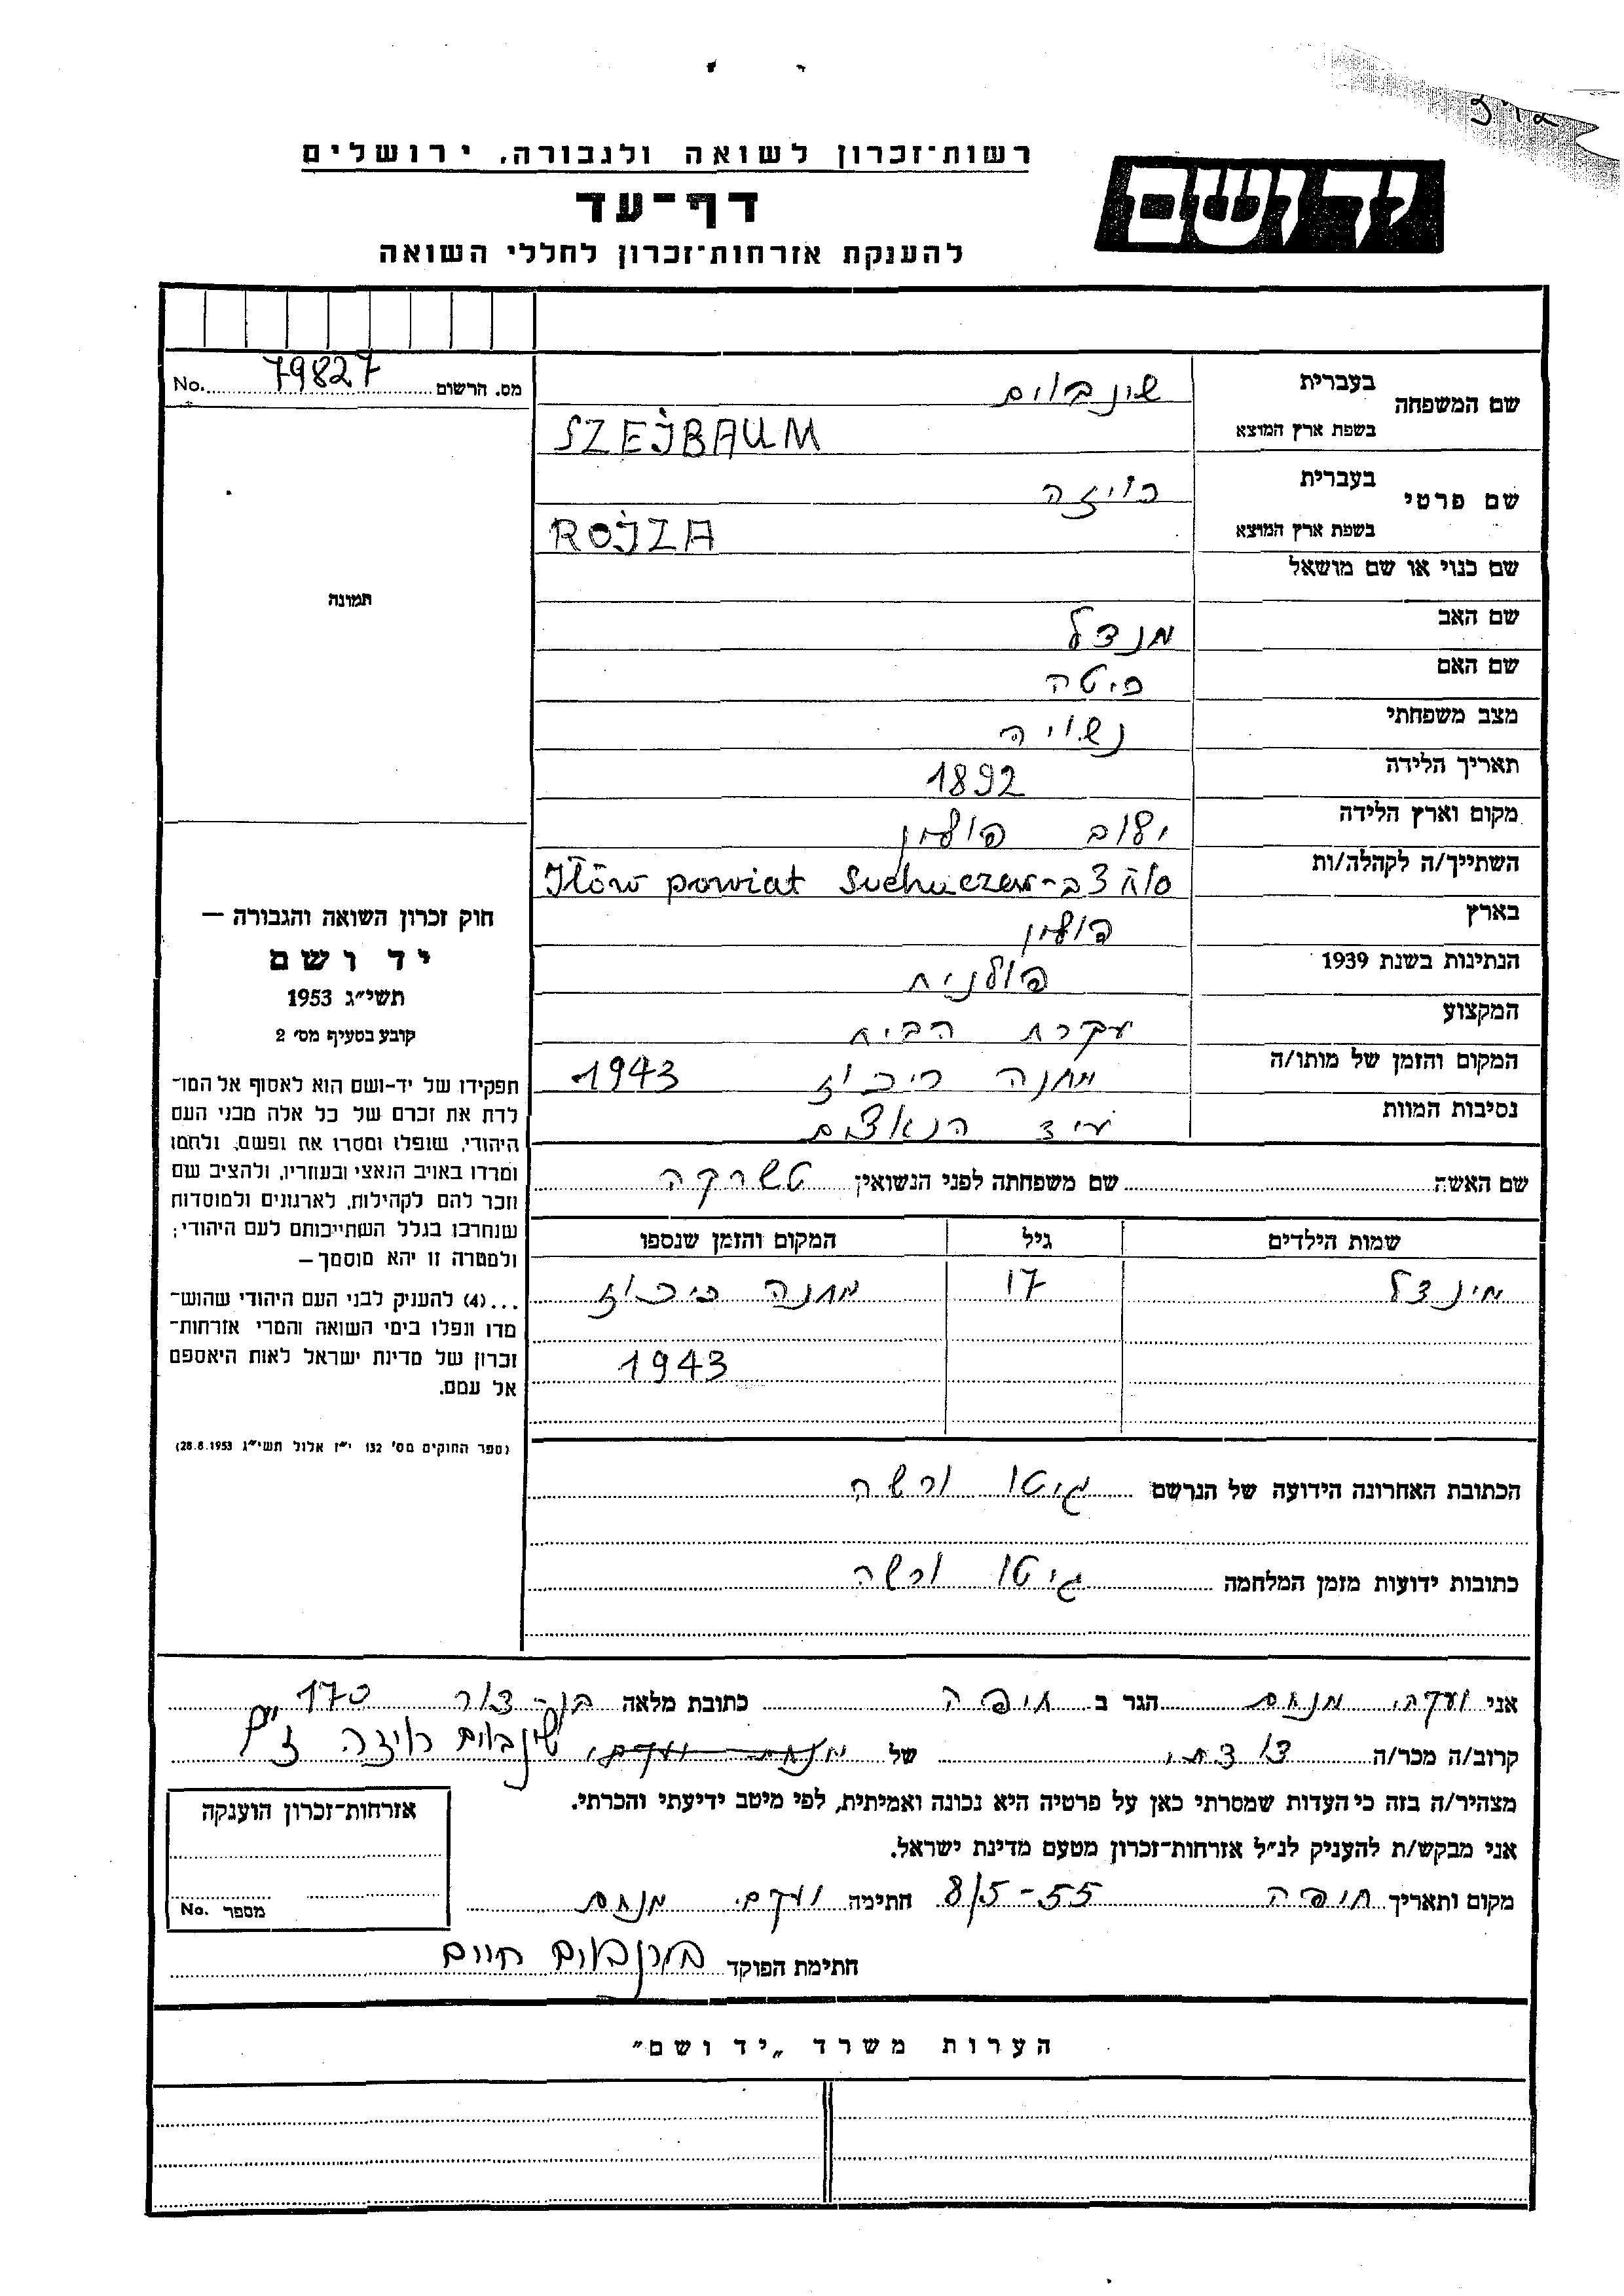 רשות-זכרון לשואה ולגבורה, ירושלים
יד ושם
דף-עד
להענקת אזרחות-זכרון לחללי השואה
No. 79827 מס. הרשום
שם המשפחה
בעברית שינבוים
בשפת ארץ המוצא SZEJBAUM
שם פרטי
בעברית רויזה
בשפת ארץ המוצא ROJZA
שם כנוי או שם מושאל
שם האב מנדל
שם האם
מצב משפחתי נשויה
תאריך הלידה 1892
מקום וארץ הלידה פולין
השתייך/ה לקהלה/ות Iłów powiat
בארץ פולין
הנתינות בשנת 1939 פולנית
המקצוע עקרת הבית
המקום והזמן של מותו/ה מחנה ריכוז 1943
נסיבות המוות ע״י הנאצים
שם האשה שם משפחתה לפני הנשואין טשרקה
שמות הילדים גיל המקום והזמן שנספו
מינדל 17 מחנה ריכוז
1943
הכתובת האחרונה הידועה של הנרשם גיטו ורשה
כתובות ידועות מזמן המלחמה גיטו ורשה
תמונה
חוק זכרון השואה והגבורה —
יד ושם
תשי״ג 1953
קובע בסעיף מס׳ 2
תפקידו של יד-ושם הוא לאסוף אל המו-
לדת את זכרם של כל אלה מבני העם
היהודי, שנפלו ומסרו את נפשם, ולחמו
ומרדו באויב הנאצי ובעוזריו, ולהציב שם
וזכר להם לקהילות, לארגונים ולמוסדות
שנחרבו בגלל השתייכותם לעם היהודי;
ולמטרה זו יהא מוסמך —
...(4) להעניק לבני העם היהודי שהוש-
מדו ונפלו בימי השואה והמרי אזרחות-
זכרון של מדינת ישראל לאות היאספם
אל עמם.
(ספר החוקים מס׳ 132 י״ז אלול תשי״ג 28.8.1953)
אני מנחם הגר ב חיפה כתובת מלאה בן-צור 170
קרוב/ה מכר/ה של שינבוים רויזה ז״ל
מצהיר/ה בזה כי העדות שמסרתי כאן על פרטיה היא נכונה ואמיתית, לפי מיטב ידיעתי והכרתי.
אני מבקש/ת להעניק לנ״ל אזרחות-זכרון מטעם מדינת ישראל.
מקום ותאריך חיפה 8/5-55 חתימה מנחם
חתימת הפוקד חיים
אזרחות-זכרון הוענקה
No. מספר
הערות משרד „יד ושם״